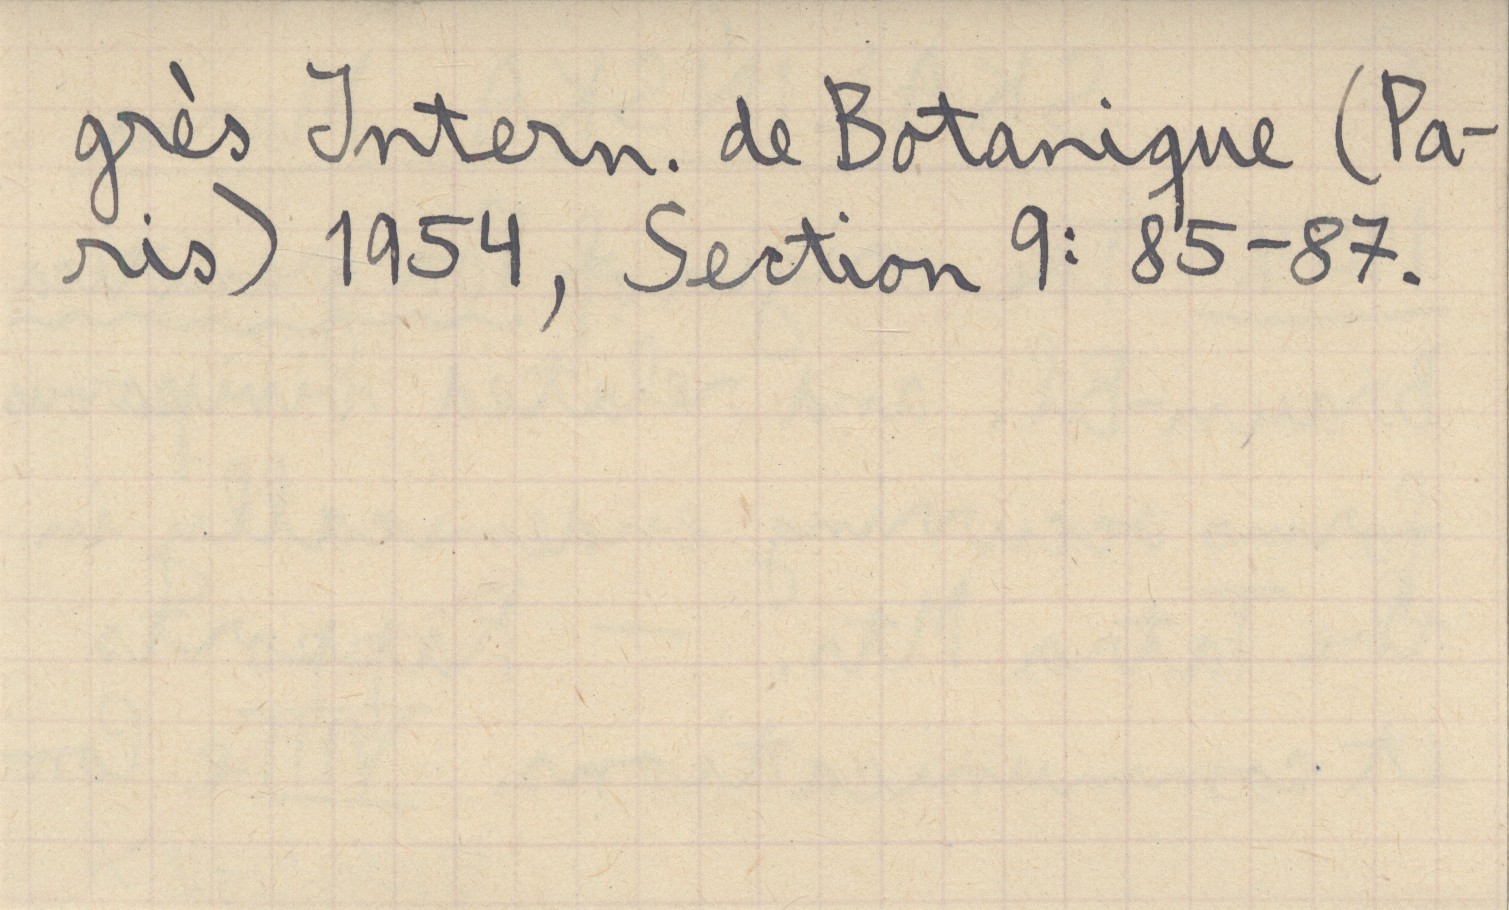 grès Intern. de Botanique (Pa-
ris) 1954, Section 9: 85-87.